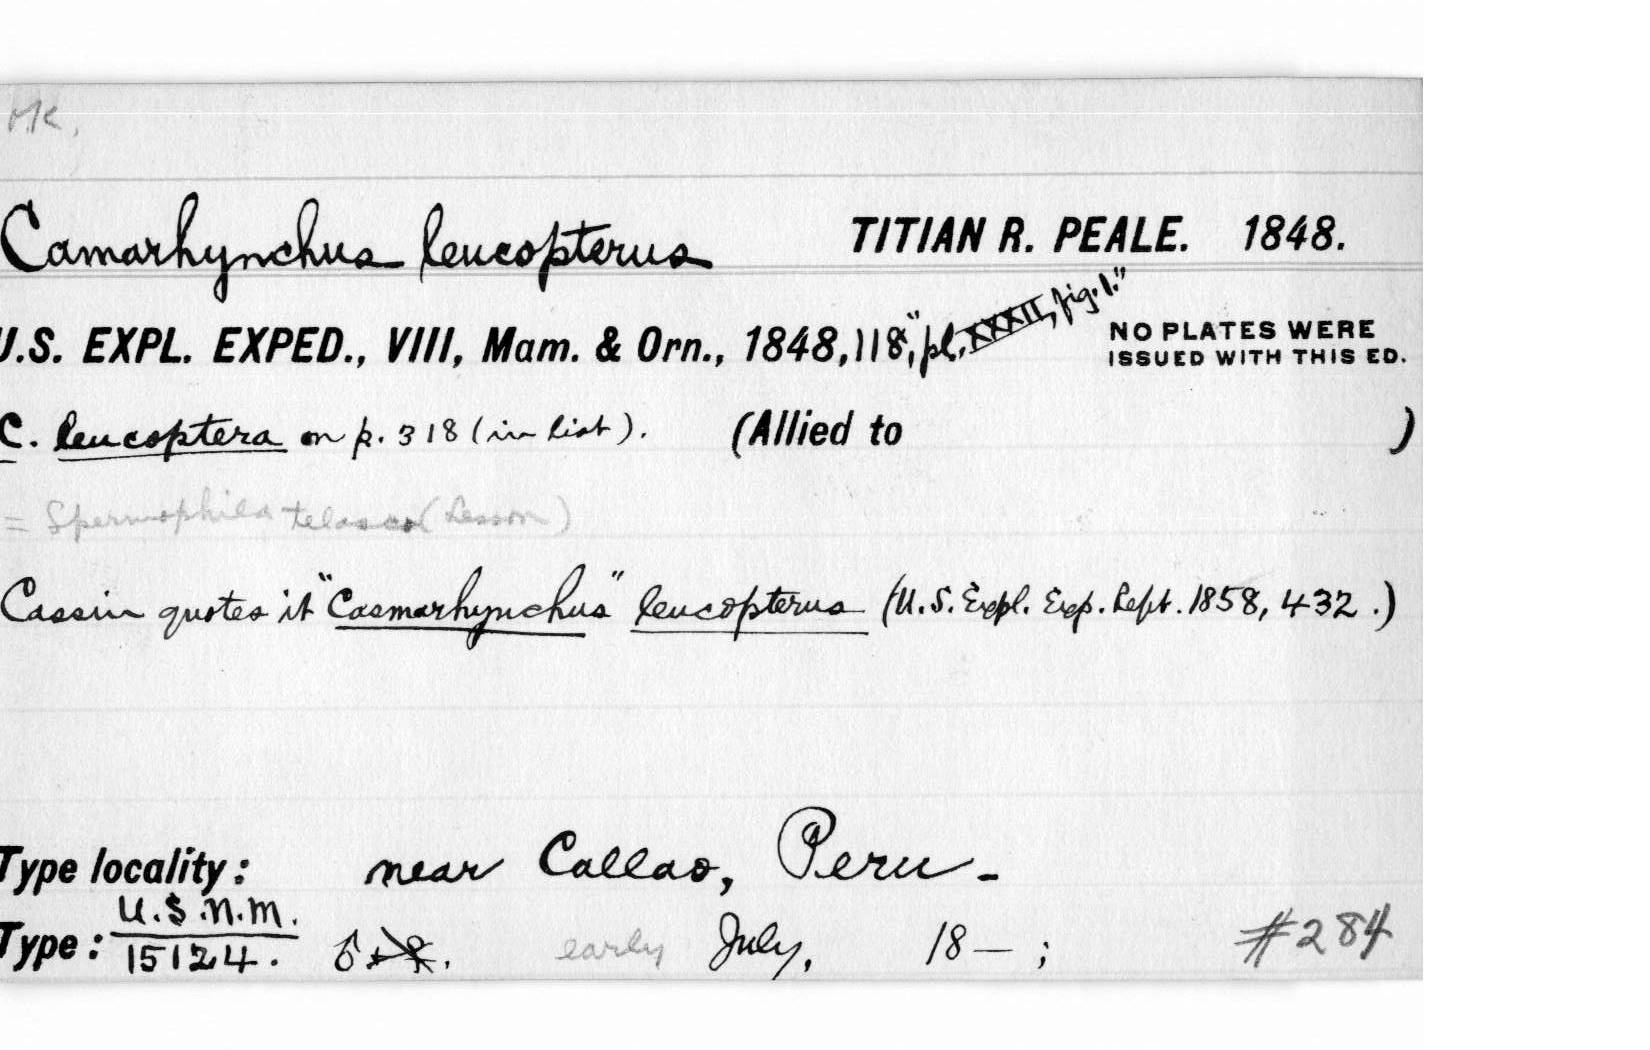 MK.
Camarhynchus leucopterus TITIAN R. PEALE. 1848.
U.S. EXPL. EXPED., VIII, Mam. & Orn., 1848, 118, "pl. XXXII, fig. 1." NO PLATES WERE ISSUED WITH THIS ED.
C. leucoptera on p. 318 (in list). (Allied to )
= Spermophila telasco (Lesson)
Cassin quotes it "Casmarhynchus" leucopterus (U.S. Expl. Exp. Rept. 1858, 432.)
Type locality: near Callao, Peru-
Type: U.S.N.M. 15124. ♂ + ♀. early July, 18—; #284